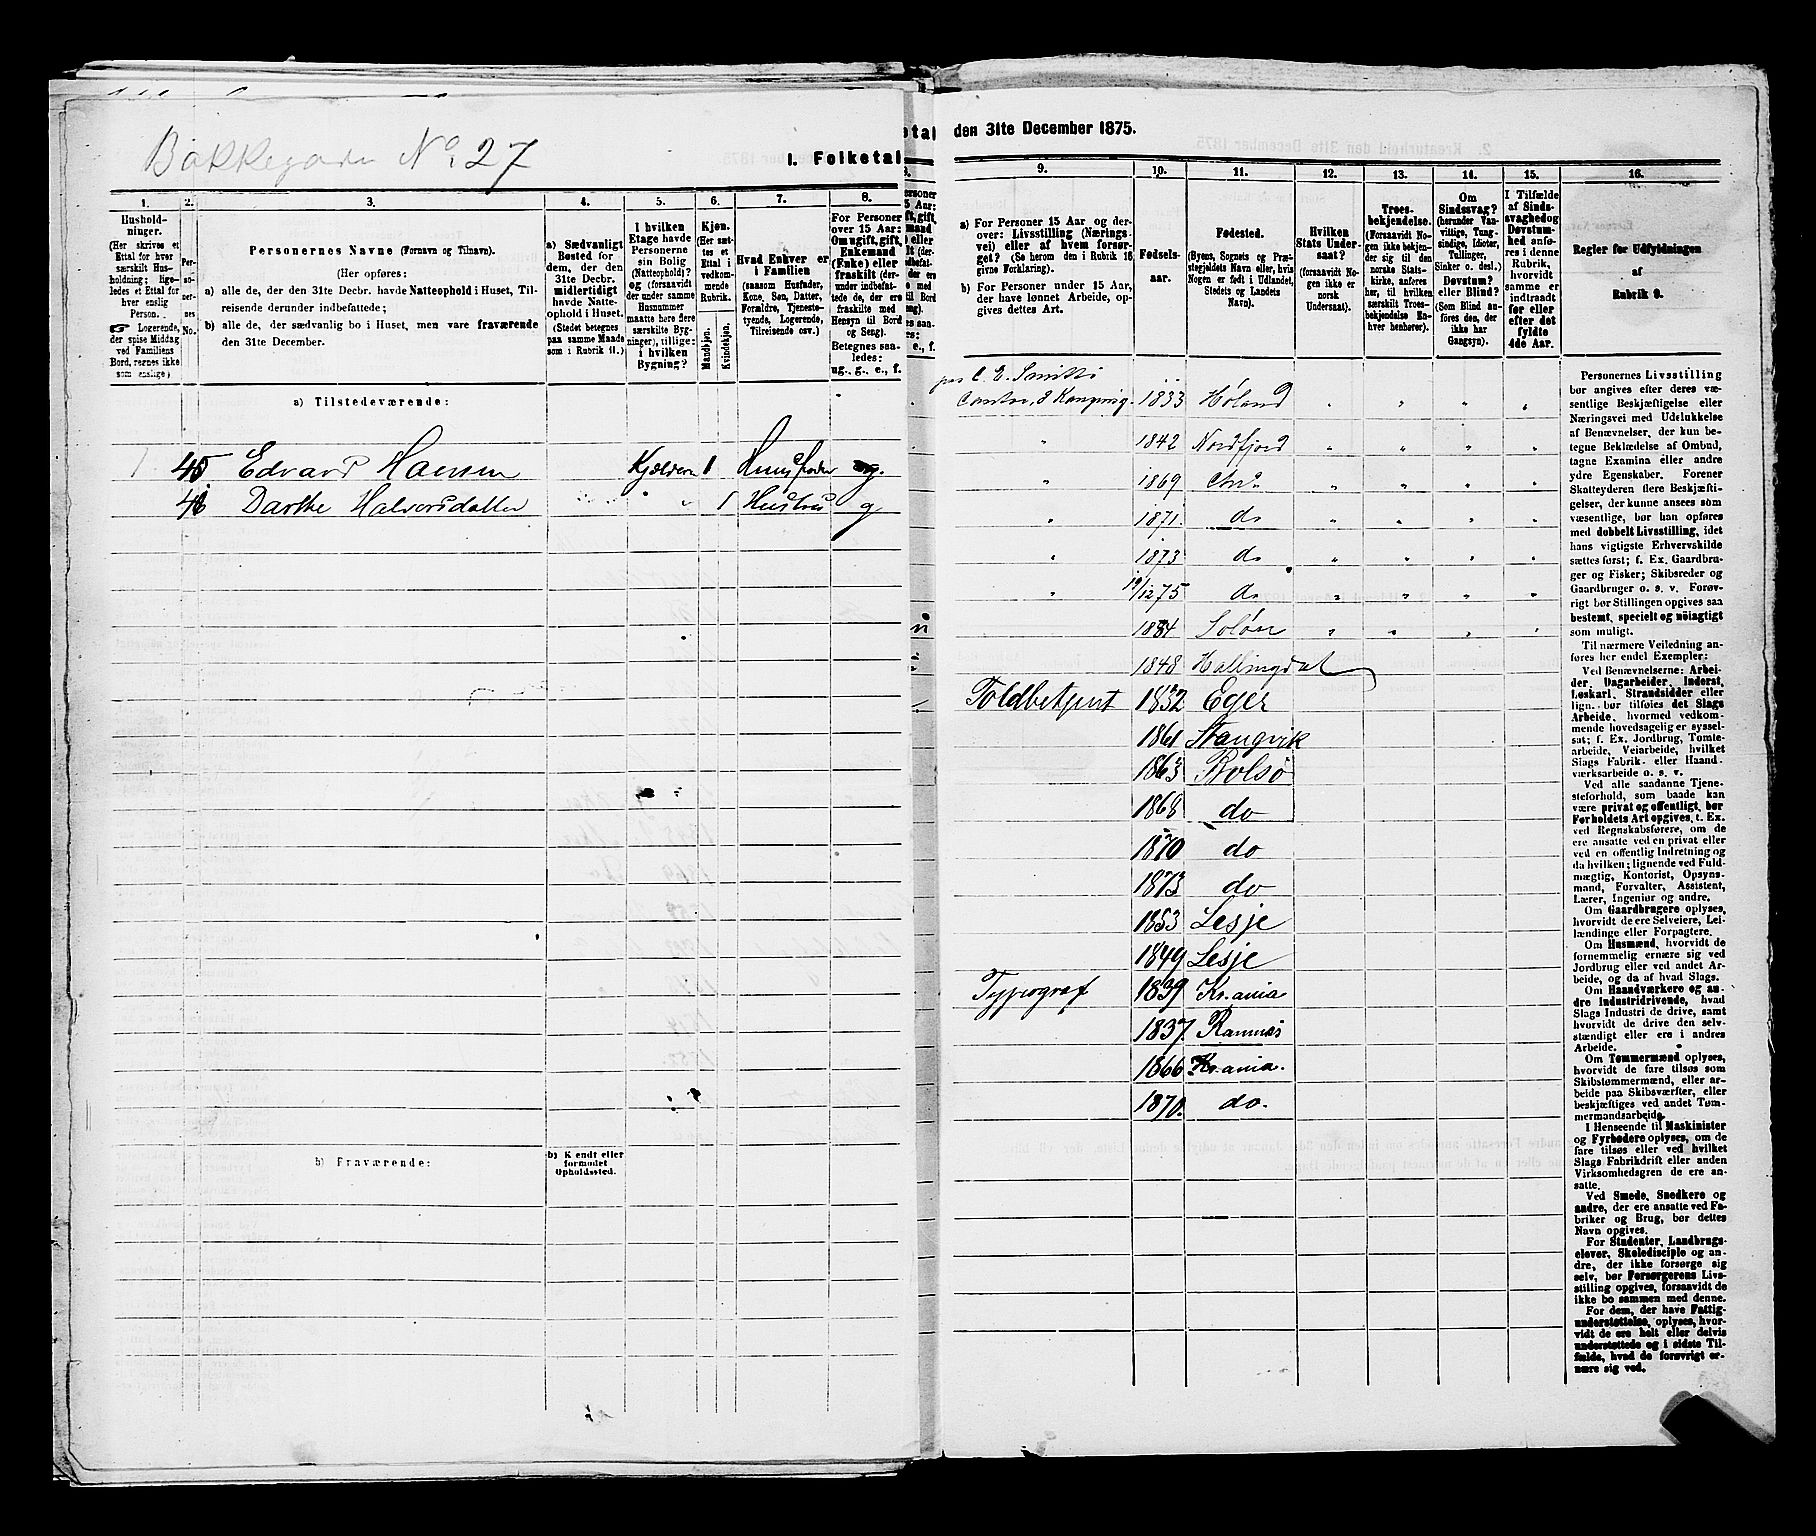 Bakkegaden No. 27
I. Folketal
1.
Hushold-
ninger.
(Her skrives et
Ettal for hver
særskilt Hus-
holdning; lige-
ledes et Ettal for
hver enslig
Person.
Logerende,
der spise Middag
ved Familiens
Bord, regnes ikke
som enslige)
2.
Per-
soner-
nes
No.
3.
Personernes Navne (Fornavn og Tilnavn).
(Her opføres:
a) alle de, der den 31te Decbr. havde Natteophold i Huset, Til-
reisende derunder indbefattede;
b) alle de, der sædvanlig bo i Huset, men vare fraværende
den 31te December.
4.
a) Sædvanligt
Bosted for
dem, der den
31te Decbr.
midlertidigt
havde Natte-
ophold i Huset.
(Stedet betegnes
paa samme Maade
som i Rubrik 11.)
5.
I hvilken
Etage havde
Personerne
sin Bolig
(Natteophold)?
og (forsaavidt
der under samme
Husnummer
maatte høre flere
særskilte Byg-
ninger), tillige:
i hvilken
Bygning?
6.
Kjøn.
(Her sæt-
tes et
Ettal i
vedkom-
mende
Rubrik.
Mandkjøn.
Kvindekjøn.
7.
Hvad Enhver er
i Familien
(saasom Husfader,
Kone, Søn, Datter,
Forældre, Tjeneste-
tyende, Logerende,
Tilreisende osv.)
8.
For Personer
over 15 Aar:
Om ugift, gift,
Enkemand
(Enke) eller
fraskilt (der-
under indbefat-
tede de, der ere
fraskilte med
Hensyn til Bord
og Seng).
Betegnes saa-
ledes:
ug., g., e., f.
a) Tilstedeværende:
1 45 Edvard Hansen Kjelderen 1 Husfader g.
46 Darthe Halvorsdatter " " 1 Hustru g
b) Fraværende:
b) Kjendt eller
formodet
Opholdssted.
den 31te December 1875.
9.
a) For Personer 15 Aar og der-
over: Livsstilling (Nærings-
vei) eller af hvem forsør-
get? (Se herom den i Rubrik 16
givne Forklaring).
b) For Personer under 15 Aar,
der have lønnet Arbeide, op-
gives dettes Art.
10.
Fødsels-
aar.
11.
Fødested.
(Byens, Sognets og Præ-
stegjeldets Navn eller, hvis
Nogen er født i Udlandet,
Stedets og Landets
Navn).
12.
Hvilken
Stats Under-
saat?
(forsaavidt No-
gen ikke er
norsk
Undersaat).
13.
Troes-
bekjendelse.
(Forsaavidt No-
gen ikke bekjen-
der sig til den
norske Stats-
kirke, anføres
her, til hvilken
særskilt Troes-
bekjendelse En-
hver henhører).
14.
Om
Sindssvag?
(herunder Van-
vittige, Tung-
sindige, Idioter,
Tullinger,
Sinker o. desl.)
Døvstum?
eller Blind?
(Som Blind an-
føres den, der
ikke har
Gangsyn).
15.
I Tilfælde
af Sinds-
svaghed og
Døvstum-
hed anfø-
res i denne
Rubrik,
hvorvidt
samme er
indtraadt
før eller
efter det
fyldte
4de Aar.
16.
Regler for Udfyldningen
af
Rubrik 9.
C. E. Smitti
1833 Høland
" 1842 Nordfjord
" 1869 Chra
" 1871. do
" 1873 do
" 19/12 75 do
1834 Soløn
1848 Hallingdal
Toldbetjent 1832 Eger
1861 Stangvik
1863 Bolsø
1868 do
1870 do
1873 do
1853 Lesje
1849 Lesje
Typograf 1839 Kr.ania
1837. Ramnæs
1866 Kr.ania.
1870. do.
Personernes Livsstilling
bør angives efter deres væ-
sentlige Beskjæftigelse eller
Næringsvei med Udelukkelse
af Benævnelser, der kun be-
tegne Beklædelse af Ombud,
tagne Examina eller andre
ydre Egenskaber. Forener
Skatteyderen flere Beskjæfti-
gelser, der kunne ansees som
væsentlige, bør han opføres
med dobbelt Livsstilling, idet
hans vigtigste Erhvervskilde
sættes først; f. Ex. Gaardbru-
ger og Fisker; Skibsreder og
Gaardbruger o. s. v. Forøv-
rigt bør Stillingen opgives saa
bestemt, specielt og nöiagtigt
som muligt.
Til nærmere Veiledning an-
føres her endel Exempler:
Ved Benævnelserne: Arbei-
der, Dagarbeider, Inderst,
Løskarl, Strandsidder eller
lign. bør tilføies det Slags
Arbeide, hvormed vedkom-
mende hovedsagelig er syssel-
sat; f. Ex. Jordbrug, Tomte-
arbeide, Veiarbeide, hvilket
Slags Fabrik- eller Haand-
værksarbeide o. s. v.
Ved alle saadanne Tjene-
steforhold, som baade kan
være privat og offentligt, bør
Forholdets Art opgives, t. Ex.
ved Regnskabsførere, om de
ere ansatte ved en privat eller
ved en offentlig Indretning og
da hvilken; lignende ved Fuld-
mægtig, Kontorist, Opsyns-
mand, Forvalter, Assistent,
Lærer, Ingeniør og andre.
Om Gaardbrugere oplyses,
hvorvidt de ere Selveiere, Lei-
lændinge eller Forpagtere.
Om Husmænd, hvorvidt de
fornemmelig ernære sig ved
Jordbrug eller ved andet Ar-
beide, og da af hvad Slags.
Om Haandværkere og an-
dre Industridrivende, hvad
Slags Industri de drive, samt
hvorvidt de drive den selv-
stændigt eller ere i andres
Arbeide.
Om Tømmermænd oplyses,
hvorvidt de fare tilsøs som
Skibstømmermænd, eller ar-
beide paa Skibsværfter, eller
beskjæftiges ved andet Tøm-
mermandsarbeide.
I Henseende til Maskinister
og Fyrbødere oplyses, om de
fare tilsøs eller ved hvilket
Slags Fabrikdrift eller anden
Virksomhedsgren de ere an-
satte.
Ved Smede, Snedkere og
andre, der ere ansatte ved Fa-
briker og Brug, bør dettes
Navn opgives.
For Studenter, Landbrugs-
elever, Skoledisciple og an-
dre, der ikke forsørge sig
selv, bør Forsørgerens Livs-
stilling opgives, forsaavidt de
ikke bo sammen med denne.
For dem, der have Fattig-
understøttelse, oplyses, hvor-
vidt de ere helt eller delvis
understøttede og i sidste Til-
fælde, hvad de forøvrigt er-
nære sig ved.